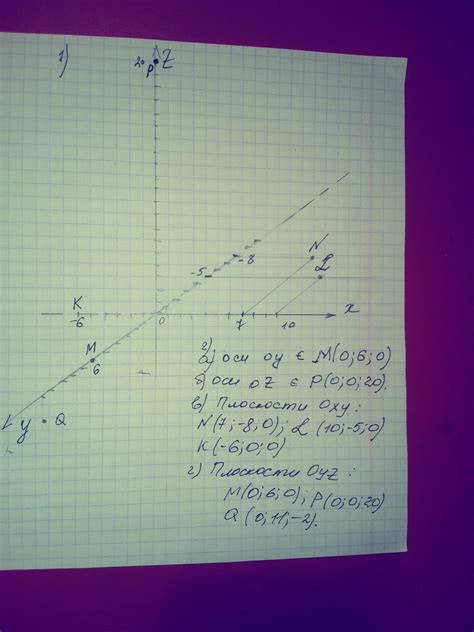 1)
20 P Z
-5 -8 N
L
K x
-6 0 7 10
M
6
y Q
2)
а) оси оy ∈ M(0;6;0)
б) оси oZ ∈ P(0;0;20).
в) Плоскости Оxy:
N(7;-8;0); L(10;-5;0)
K(-6;0;0)
г) Плоскости Оyz:
M(0;6;0), P(0;0;20)
Q(0;11;-2).